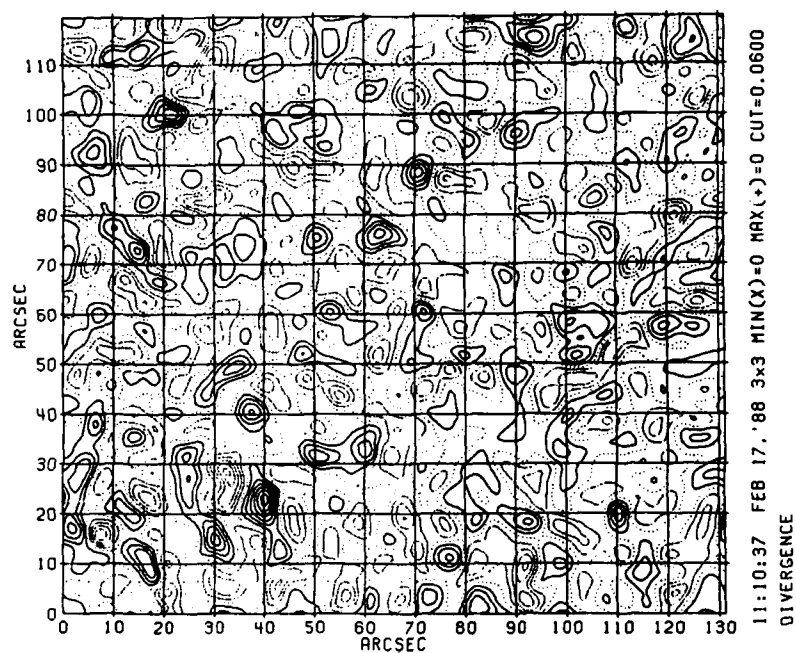 110
100
90
80
70
60
50
40
30
20
10
0
ARCSEC
0 10 20 30 40 50 60 70 80 90 100 110 120 130
ARCSEC
11:10:37 FEB 17,'88 3x3 MIN(X)=0 MAX(+)=0 CUT=0.0600
DIVERGENCE